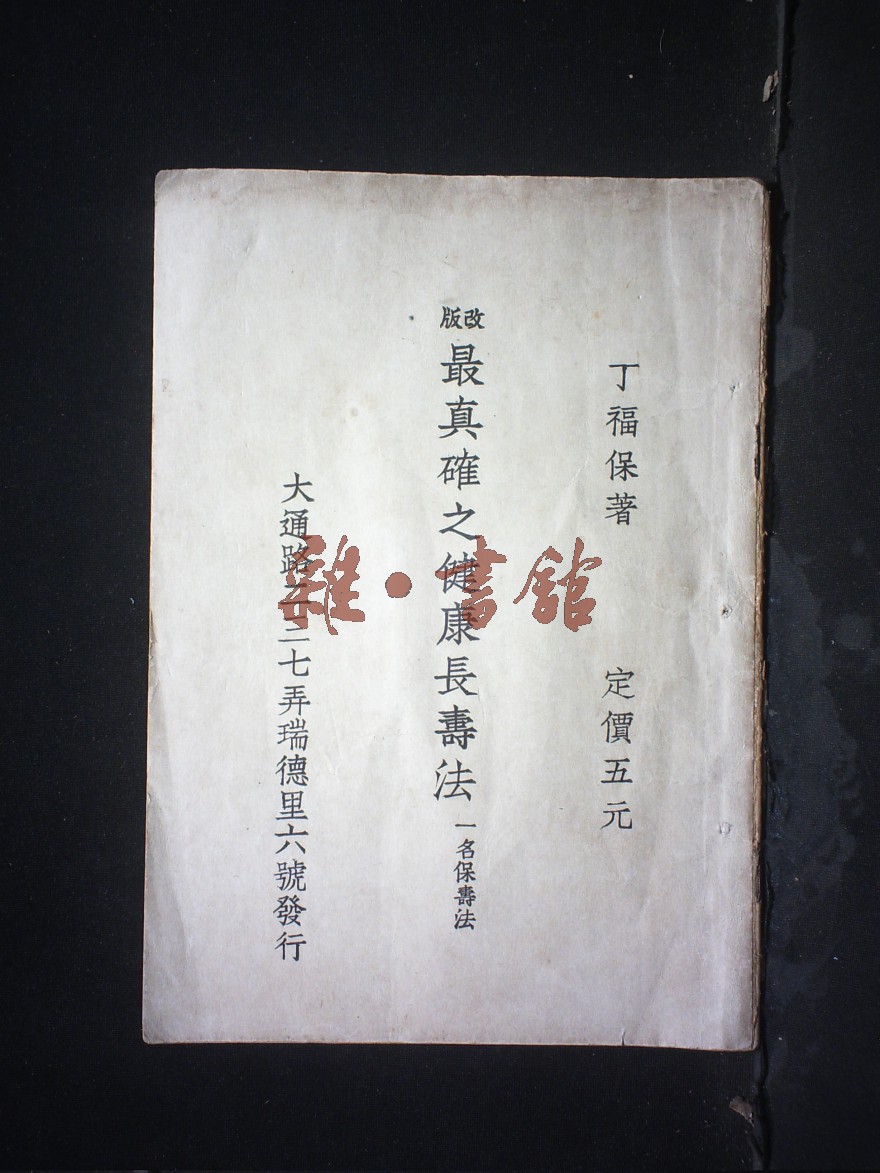 丁福保著 定價五元
改版 最真確之健康長壽法 一名保壽法
大通路二三七弄瑞德里六號發行
雜·書館